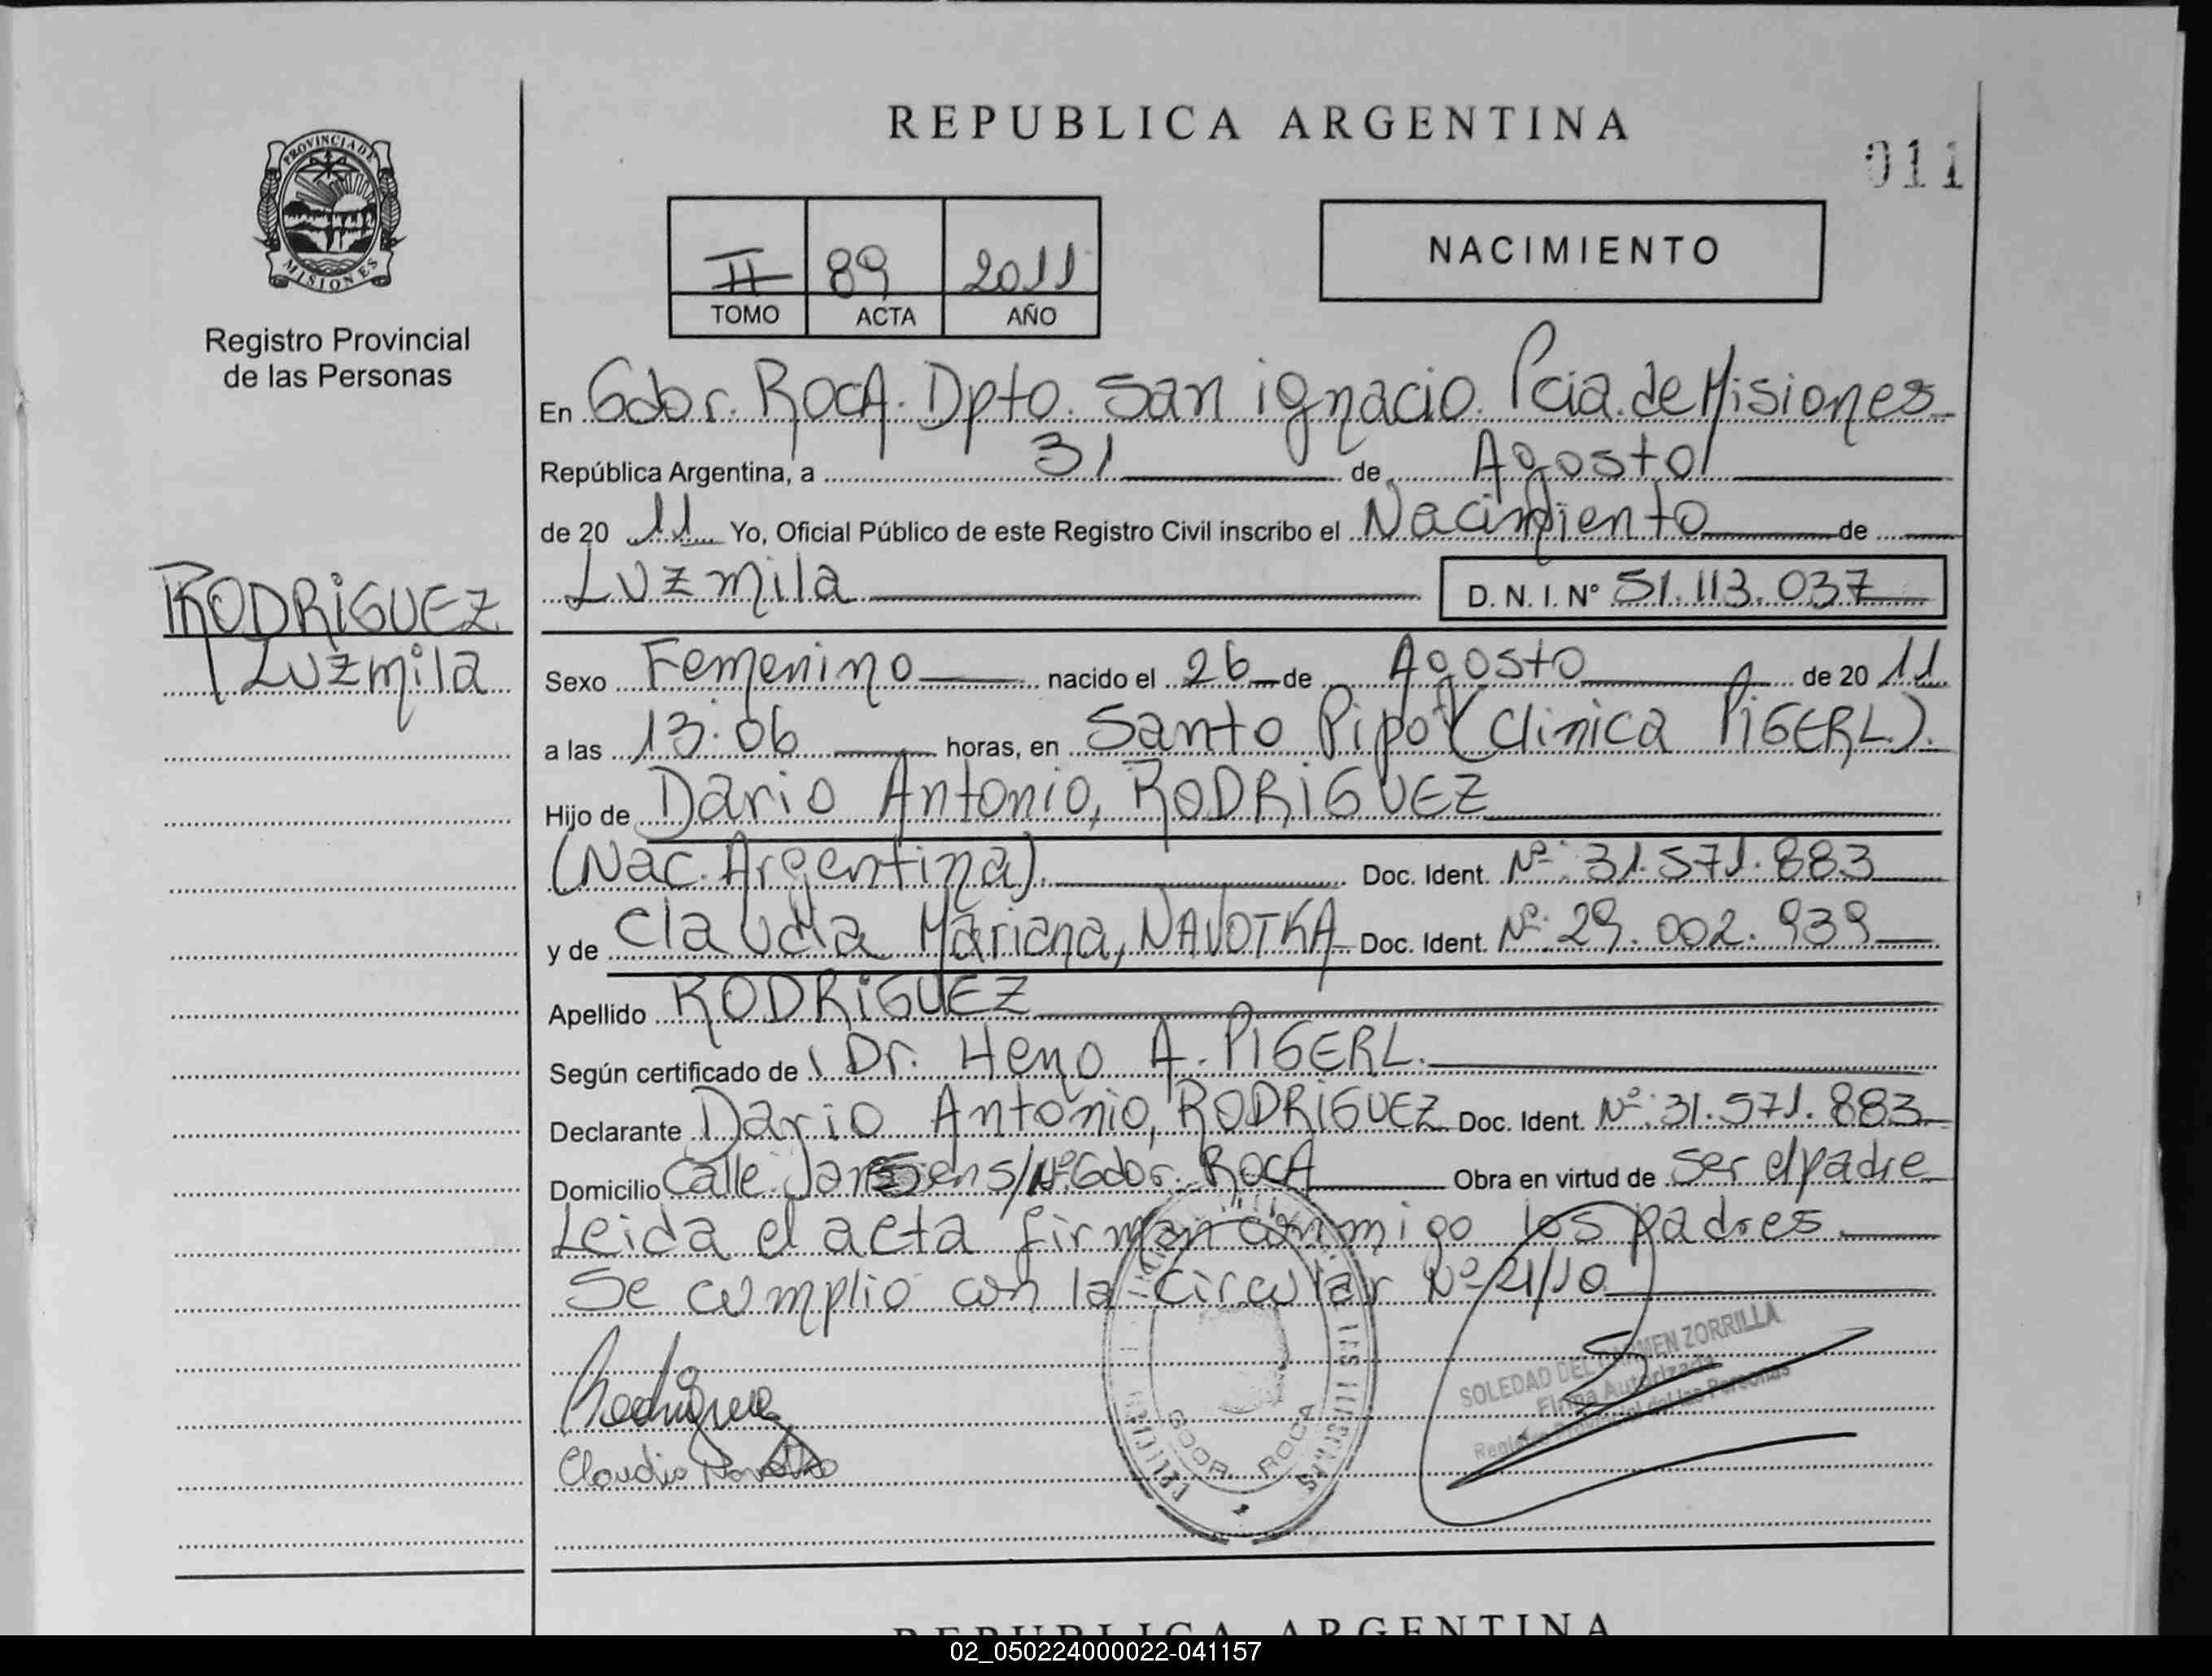 REPUBLICA ARGENTINA
011
PROVINCIA DE MISIONES
Registro Provincial
de las Personas
II 89 2011
TOMO ACTA AÑO
NACIMIENTO
En Gdor. Roca. Dpto. San ignacio. Pcia. de Misiones
República Argentina, a 31 de Agosto
de 20 11 Yo, Oficial Público de este Registro Civil inscribo el Nacimiento de
Luzmila D. N. I. Nº 51.113.037
RODRiGUEZ
Luzmila
Sexo Femenino nacido el 26 de Agosto de 20 11
a las 13:06 horas, en Santo Pipo (Clinica PiGERL).
Hijo de Dario Antonio, RODRiGUEZ
(Nac. Argentina). Doc. Ident. Nº: 31.571.883
y de Claudia Mariana, NAVOTKA Doc. Ident. Nº: 29.002.939
Apellido RODRiGUEZ
Según certificado de Dr. Heno A. PIGERL.
Declarante Dario Antonio, RODRiGUEZ Doc. Ident. Nº: 31.571.883
Domicilio Calle Janssen s/Nº Gdor. Roca Obra en virtud de ser el padre
Leida el acta firman conmigo los padres
Se cumplio con la circular Nº 21/10
Rodriguez
Claudia Navotka
GDOR ROCA
SOLEDAD DEL CARMEN ZORRILLA
Firma Autorizada
Registro Provincial de las Personas
REPUBLICA ARGENTINA
02_050224000022-041157